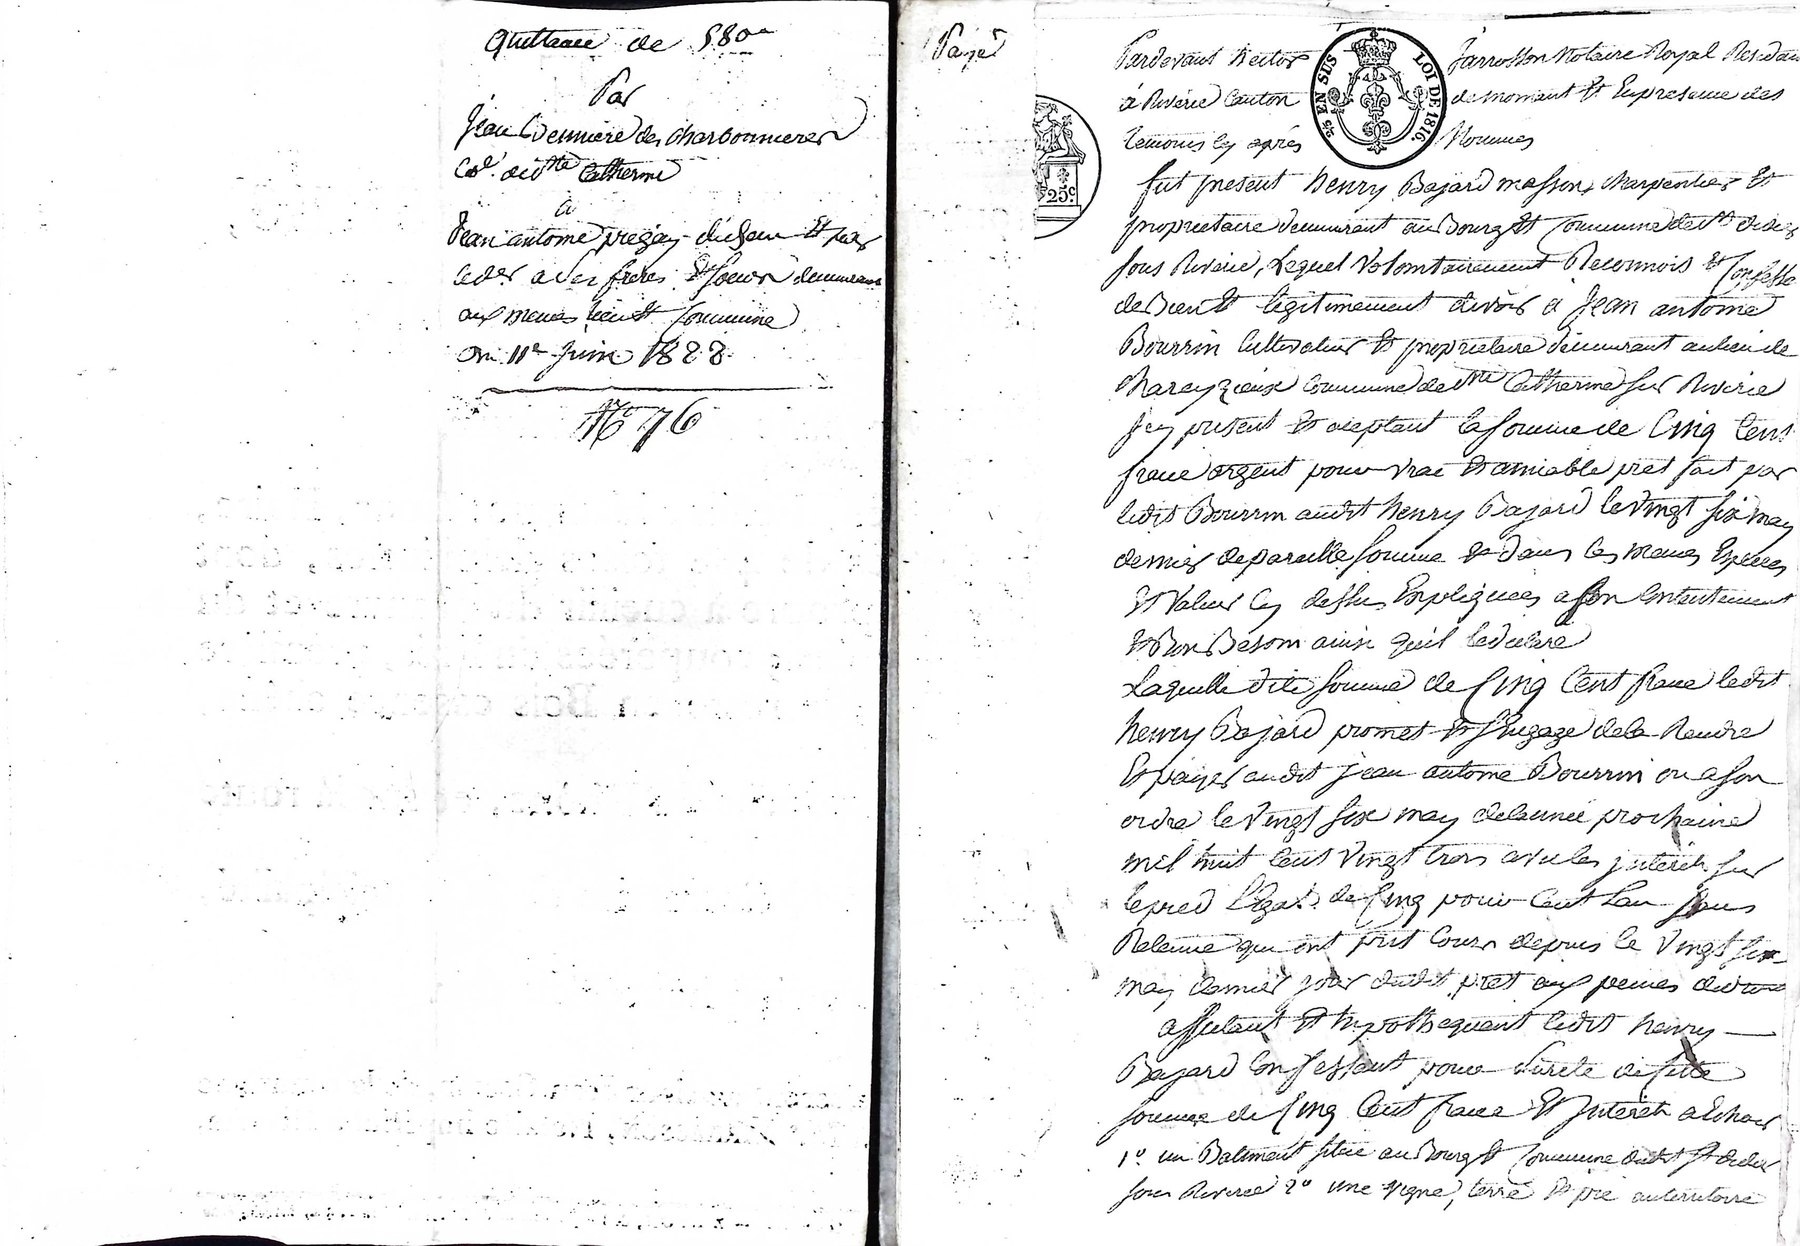 quittance de 580
Par
Jean des charbonnieres
Ste Catherine
a
Jean antoine et par
freres & soeurs demeurant
aux memes lieu et Commune
du 11e Juin 1822
No 76
Payé
Pardevant hector Jarrosson Notaire Royal Residant
à Riverie Canton de mornant Et En presence des
temoins cy après Nommes
25 EN SUS
LOI DE 1816.
25c
fut present henry Bajard masson, charpentier Et
proprietaire demeurant au Bourg Et Commune de St didier
sous Riverie, Lequel Volontairement Reconnois Et Confesse
de Bien Et legitimement devoir à Jean antoine
Bourrin Cultivateur Et proprietaire demeurant au lieu de
Chareyzieux Commune de Ste Catherine sur Riverie
Jcy present Et aceptant la somme de Cinq Cent
franc argent pour vrai Et amiable pret fait par
ledit Bourrin audit henry Bajard le Vingt six may
dernier de pareille somme Et dans les memes Especes
Et Valeur Cy dessus Expliquees a son Contentement
Et Bon Besoin ainsi quil le declare
Laquelle dite somme de Cinq Cent franc ledit
henry Bajard promet Et s'Engage de la Rendre
Et payer audit jean antoine Bourrin ou a son
ordre le Vingt six may de lannée prochaine
mil huit Cent Vingt trois avec les jnterets sur
le pied L'Egal de Cinq pour Cent Lan sans
Retenue qui ont prit Cours depuis le Vingt six
may dernier jour dudit pret aux peines de droit
affectant Et hypothequant ledit henry
Bajard Confessant pour Sureté de Cette
somme de Cinq Cent franc Et Jnterets a Echoir
1o un Batiment situé au Bourg Et Commune dudit St didier
sous Riverie 2o une vigne, terre Et pré au territoire